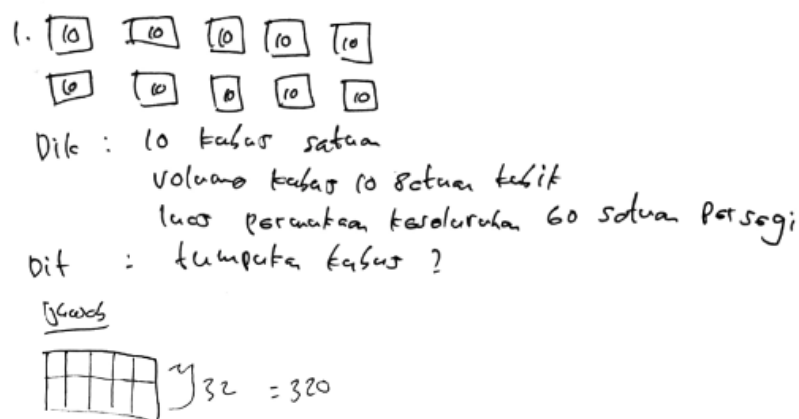 1. 10 10 10 10 10
10 10 10 10 10
Dik : 10 kubus satuan
volume kubus 10 satuan kubik
luas permukaan keseluruhan 60 satuan persegi
Dit : tumpukan kubus ?
Jawab
32 = 320